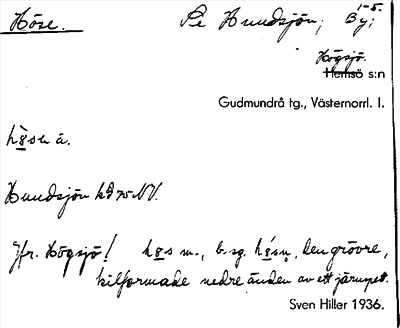 Höse.
Se Hundsjön, By;
1-5.
Högsjö.
Hemsö s:n
Gudmundrå tg., Västernorrl. l.
Hundsjön
Jfr. Högsjö! høs m., b. sg. den grövre,
kilformade nedre änden av ett järnspett.
Sven Hiller 1936.